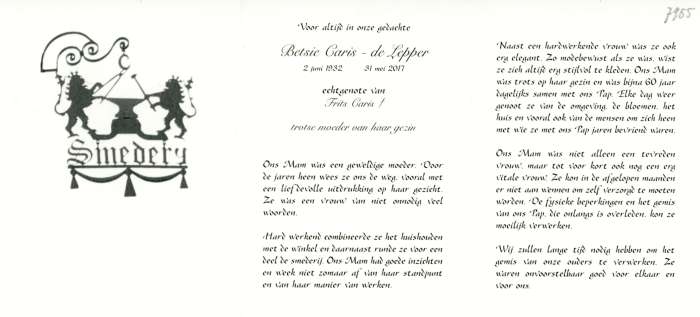 7955
Smedery
Voor altijd in onze gedachte
Betsie Caris - de Lepper
2 juni 1932 31 mei 2017
echtgenote van
Frits Caris †
trotse moeder van haar gezin
Ons Mam was een geweldige moeder. Door
de jaren heen wees ze ons de weg, vooral met
een liefdevolle uitdrukking op haar gezicht.
Ze was een vrouw van niet onnodig veel
woorden.
Hard werkend combineerde ze het huishouden
met de winkel en daarnaast runde ze voor een
deel de smederij. Ons Mam had goede inzichten
en week niet zomaar af van haar standpunt
en van haar manier van werken.
Naast een hardwerkende vrouw was ze ook
erg elegant. Zo modebewust als ze was, wist
ze zich altijd erg stijlvol te kleden. Ons Mam
was trots op haar gezin en was bijna 60 jaar
dagelijks samen met ons Pap. Elke dag weer
genoot ze van de omgeving, de bloemen, het
huis en vooral ook van de mensen om zich heen
met wie ze met ons Pap jaren bevriend waren.
Ons Mam was niet alleen een tevreden
vrouw, maar tot voor kort ook nog een erg
vitale vrouw. Ze kon in de afgelopen maanden
er niet aan wennen om zelf verzorgd te moeten
worden. De fysieke beperkingen en het gemis
van ons Pap, die onlangs is overleden, kon ze
moeilijk verwerken.
Wij zullen lange tijd nodig hebben om het
gemis van onze ouders te verwerken. Ze
waren onvoorstelbaar goed voor elkaar en
voor ons.